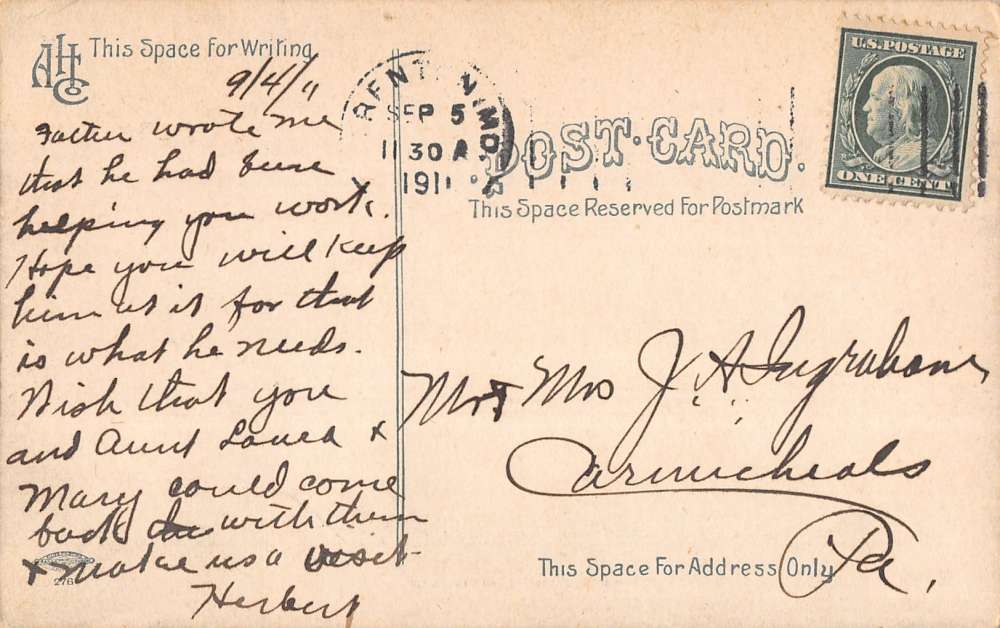 AHCo
This Space For Writing
9/4/11
Father wrote me
that he had been
helping you work.
Hope you will keep
him at it for that
is what he needs.
Wish that you
and Aunt Laura &
Mary could come
back with them
& make us a visit
Herbert
276
TRENTON, MO.
SEP 5
11 30 A
1911
U.S. POSTAGE
ONE CENT
POST·CARD.
This Space Reserved For Postmark
Mr & Mrs J. A. Ingraham
Carmicheals
Pa.
This Space For Address Only